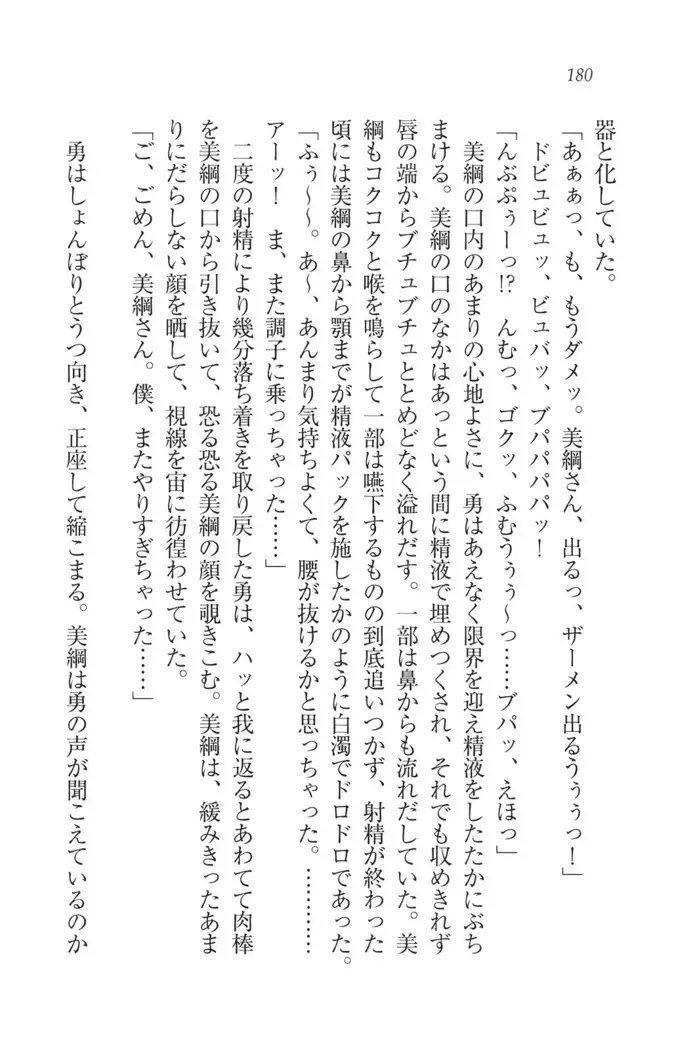 180
器と化していた。
「あぁぁっ、も、もうダメッ。美綱さん、出るっ、ザーメン出るうぅぅっ！」
ドビュビュッ、ビュバッ、ブパパパパッ！
「んぶぷぅーっ!?　んむっ、ゴクッ、ふむうぅぅ～っ……ブパッ、えほっ」
美綱の口内のあまりの心地よさに、勇はあえなく限界を迎え精液をしたたかにぶち
まける。美綱の口のなかはあっという間に精液で埋めつくされ、それでも収めきれず
唇の端からブチュブチュととめどなく溢れだす。一部は鼻からも流れだしていた。美
綱もコクコクと喉を鳴らして一部は嚥下するものの到底追いつかず、射精が終わった
頃には美綱の鼻から顎までが精液パックを施したかのように白濁でドロドロであった。
「ふぅ～～。あ～、あんまり気持ちよくて、腰が抜けるかと思っちゃった。…………
アーッ！　ま、また調子に乗っちゃった……」
二度の射精により幾分落ち着きを取り戻した勇は、ハッと我に返るとあわてて肉棒
を美綱の口から引き抜いて、恐る恐る美綱の顔を覗きこむ。美綱は、緩みきったあま
りにだらしない顔を晒して、視線を宙に彷徨わせていた。
「ご、ごめん、美綱さん。僕、またやりすぎちゃった……」
勇はしょんぼりとうつ向き、正座して縮こまる。美綱は勇の声が聞こえているのか